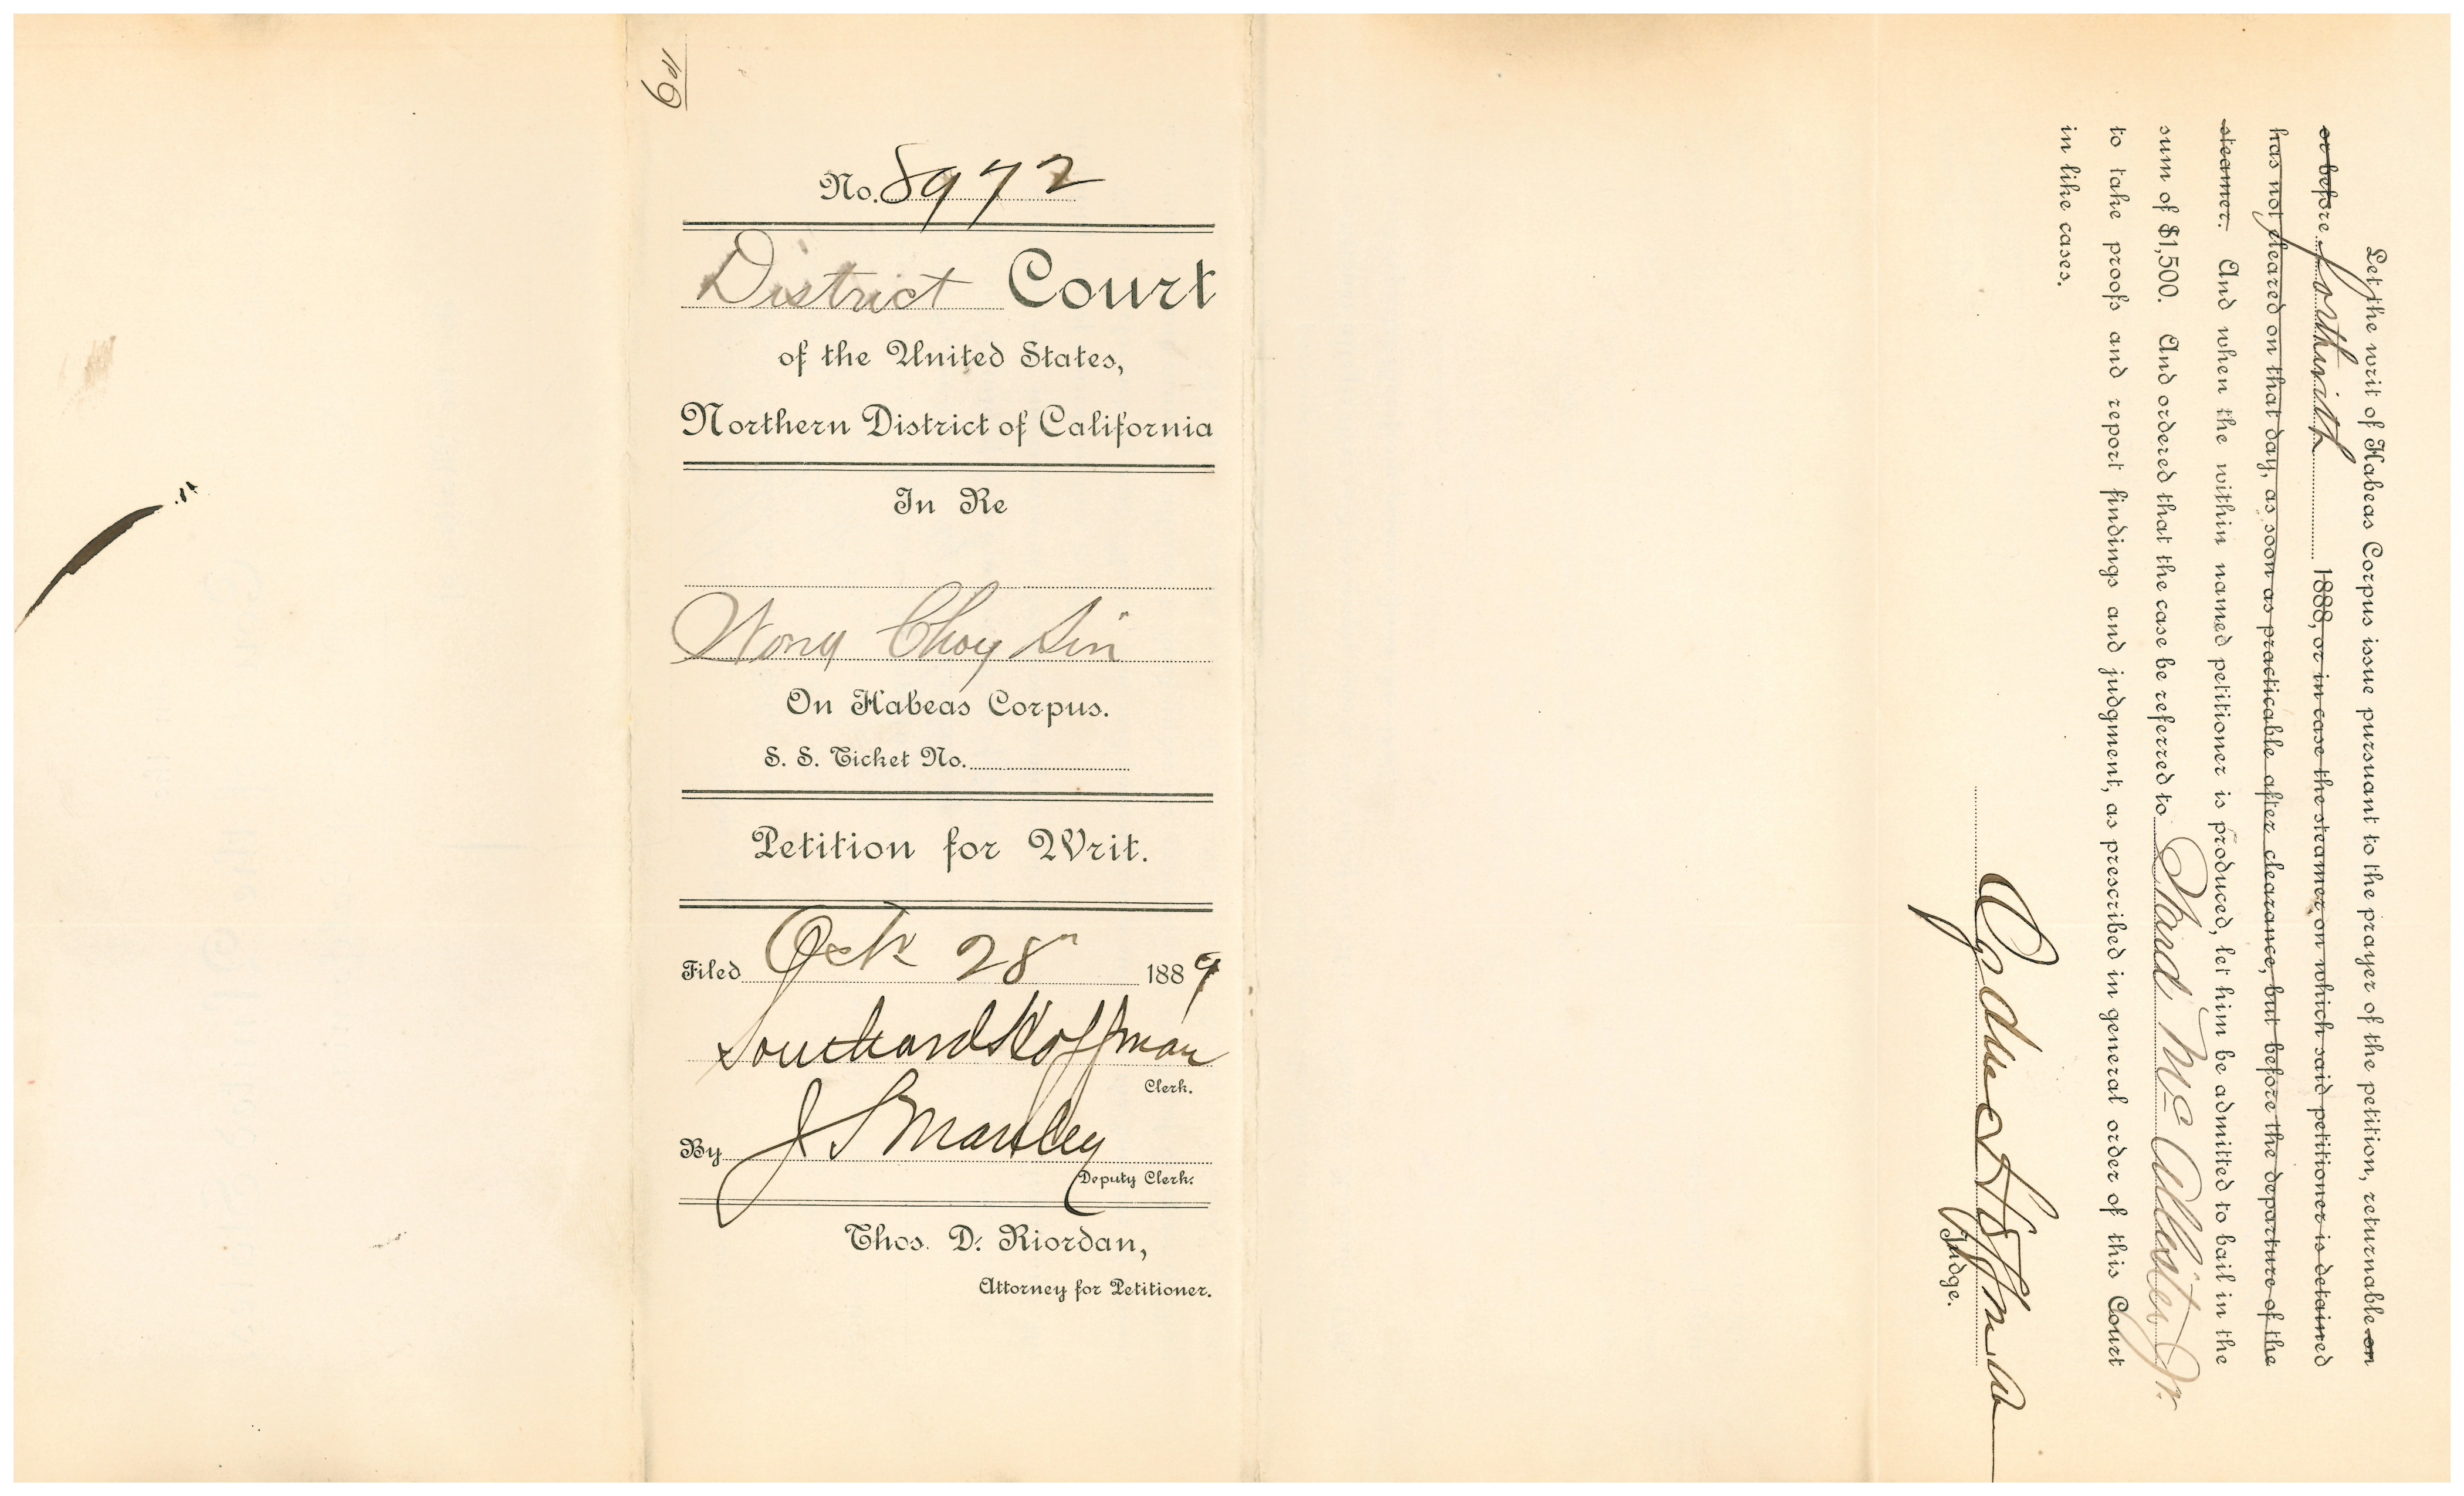 No. 8972
District Court
of the United States,
Northern District of California
In Re
Wong Choy Sin
On Habeas Corpus.
S. S. Ticket No.
Petition for Writ.
Filed Oct 28" 1889
Southard Hoffman
Clerk.
By J S Manley
Deputy Clerk.
Thos. D. Riordan,
Attorney for Petitioner.
Let the writ of Habeas Corpus issue pursuant to the prayer of the petition, returnable on
or before forthwith 1888, or in case the steamer on which said petitioner is detained
has not cleared on that day, as soon as practicable after clearance, but before the departure of the
steamer. And when the within named petitioner is produced, let him be admitted to bail in the
sum of $1,500. And ordered that the case be referred to Ward McAllister Jr.
to take proofs and report findings and judgment, as prescribed in general order of this Court
in like cases.
Ogden Hoffman
Judge.